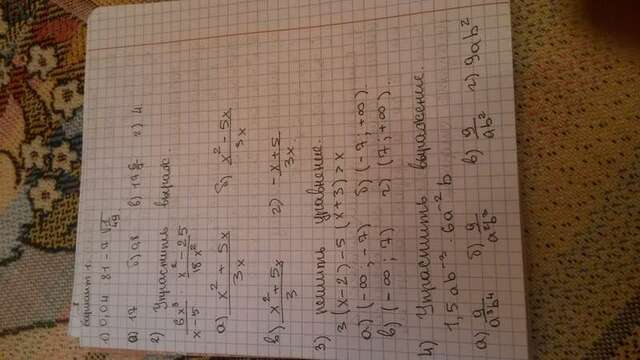 Вариант 1.
1) 0,04 81 - 7 √1/49
а) 17 б) 0,8 в) 17 г) 4
2) Упрастить выраж.
6x³/x-5 x²-25/18x²
а) x²+5x/3x б) x²-5x/3x
в) x²+5x/3 г) -x+5/3x
3) решить уравнение.
3(x-2)-5(x+3)>x
а) (-∞; -7) б) (-7; +∞)
в) (-∞; 7) г) (7; +∞).
4) Упрастить выражение.
1,5ab⁻³ · 6a⁻²b
а) 9/a³b⁴ б) 9/a²b³ в) 9/ab² г) 9ab²